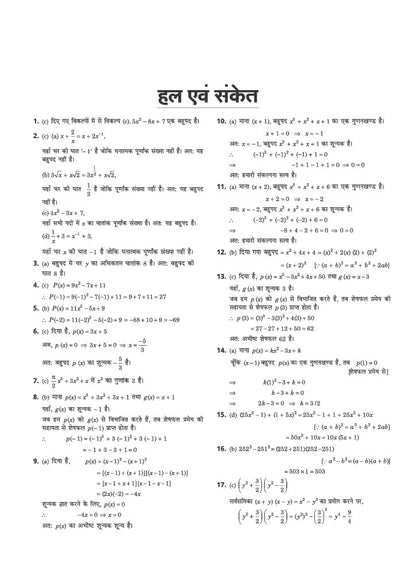 हल एवं संकेत
1. (c) दिए गए विकल्पों में से विकल्प (c), 5x² – 8x + 7 एक बहुपद है।
2. (c) (a) x + 2/x = x + 2x⁻¹,
यहाँ चर की घात '–1' है जोकि धनात्मक पूर्णांक संख्या नहीं है। अतः यह
बहुपद नहीं है।
(b) 3√x + x√2 = 3x^(1/2) + x√2,
यहाँ चर की घात 1/2 है जोकि धनात्मक पूर्णांक संख्या नहीं है।
(c) 4x² – 3x + 7,
यहाँ सभी पदों में x का घातांक पूर्णांक संख्या है। अतः यह बहुपद है।
(d) 1/x + 3 = x⁻¹ + 3,
यहाँ चर x की घात –1 है जोकि धनात्मक पूर्णांक संख्या नहीं है।
3. (a) बहुपद में चर y की अधिकतम घातांक 8 है। अतः बहुपद की
घात 8 है।
4. (c) P(x) = 9x³ – 7x + 11
∴ P(–1) = 9(–1)³ – 7(–1) + 11 = 9 + 7 + 11 = 27
5. (b) P(x) = 11x³ – 5x + 9
∴ P(–2) = 11(–2)³ – 5(–2) + 9 = –88 + 10 + 9 = –69
6. (c) दिया है, p(x) = 3x + 5
अब, p(x) = 0 ⇒ 3x + 5 = 0 ⇒ x = –5/3
अतः बहुपद p(x) का शून्यक –5/3 है।
7. (c) π/2 x² + 3x² + x में x² का गुणांक 3 है।
8. (b) माना p(x) = x³ + 3x² + 3x + 1 तथा g(x) = x + 1
यहाँ, g(x) का शून्यक –1 है।
जब हम p(x) को g(x) से विभाजित करते हैं, तब शेषफल प्रमेय की
सहायता से शेषफल p(–1) प्राप्त होता है।
∴ p(–1) = (–1)³ + 3(–1)² + 3(–1) + 1
= –1 + 3 – 3 + 1 = 0
9. (a) दिया है, p(x) = (x – 1)² – (x + 1)²
= [(x – 1) + (x + 1)][(x – 1) – (x + 1)]
= [x – 1 + x + 1][x – 1 – x – 1]
= (2x)(–2) = –4x
शून्यक ज्ञात करने के लिए, p(x) = 0
∴ –4x = 0 ⇒ x = 0
अतः p(x) का अभीष्ट शून्यक शून्य है।
10. (a) माना (x + 1), बहुपद x³ + x² + x + 1 का एक गुणनखण्ड है।
x + 1 = 0 ⇒ x = –1
अतः x = –1, बहुपद x³ + x² + x + 1 का शून्यक है।
∴ (–1)³ + (–1)² + (–1) + 1 = 0
⇒ –1 + 1 – 1 + 1 = 0 ⇒ 0 = 0
अतः हमारी संकल्पना सत्य है।
11. (a) माना (x + 2), बहुपद x³ + x² + x + 6 का एक गुणनखण्ड है।
x + 2 = 0 ⇒ x = –2
अतः x = –2, बहुपद x³ + x² + x + 6 का शून्यक है।
∴ (–2)³ + (–2)² + (–2) + 6 = 0
⇒ –8 + 4 – 2 + 6 = 0 ⇒ 0 = 0
अतः हमारी संकल्पना सत्य है।
12. (b) दिया गया बहुपद = x² + 4x + 4 = (x)² + 2(x)(2) + (2)²
= (x + 2)² [∵ (a + b)² = a² + b² + 2ab]
13. (c) दिया है, p(x) = x³ – 3x² + 4x + 50 तथा g(x) = x – 3
यहाँ, g(x) का शून्यक 3 है।
जब हम p(x) को g(x) से विभाजित करते हैं, तब शेषफल प्रमेय की
सहायता से शेषफल p(3) प्राप्त होता है।
∴ p(3) = (3)³ – 3(3)² + 4(3) + 50
= 27 – 27 + 12 + 50 = 62
अतः अभीष्ट शेषफल 62 है।
14. (a) माना p(x) = kx² – 3x + k
चूँकि (x – 1) बहुपद p(x) का एक गुणनखण्ड है, तब p(1) = 0
[शेषफल प्रमेय से]
⇒ k(1)² – 3 + k = 0
⇒ k – 3 + k = 0
⇒ 2k – 3 = 0 ⇒ k = 3/2
15. (d) (25x² – 1) + (1 + 5x)² = 25x² – 1 + 1 + 25x² + 10x
[∵ (a + b)² = a² + b² + 2ab]
= 50x² + 10x = 10x (5x + 1)
16. (b) 252² – 251² = (252 + 251)(252 – 251)
[∵ a² – b² = (a – b)(a + b)]
= 503 × 1 = 503
17. (c) (y² + 3/2)(y² – 3/2)
सर्वसमिका (x + y)(x – y) = x² – y² का प्रयोग करने पर,
(y² + 3/2)(y² – 3/2) = (y²)² – (3/2)² = y⁴ – 9/4